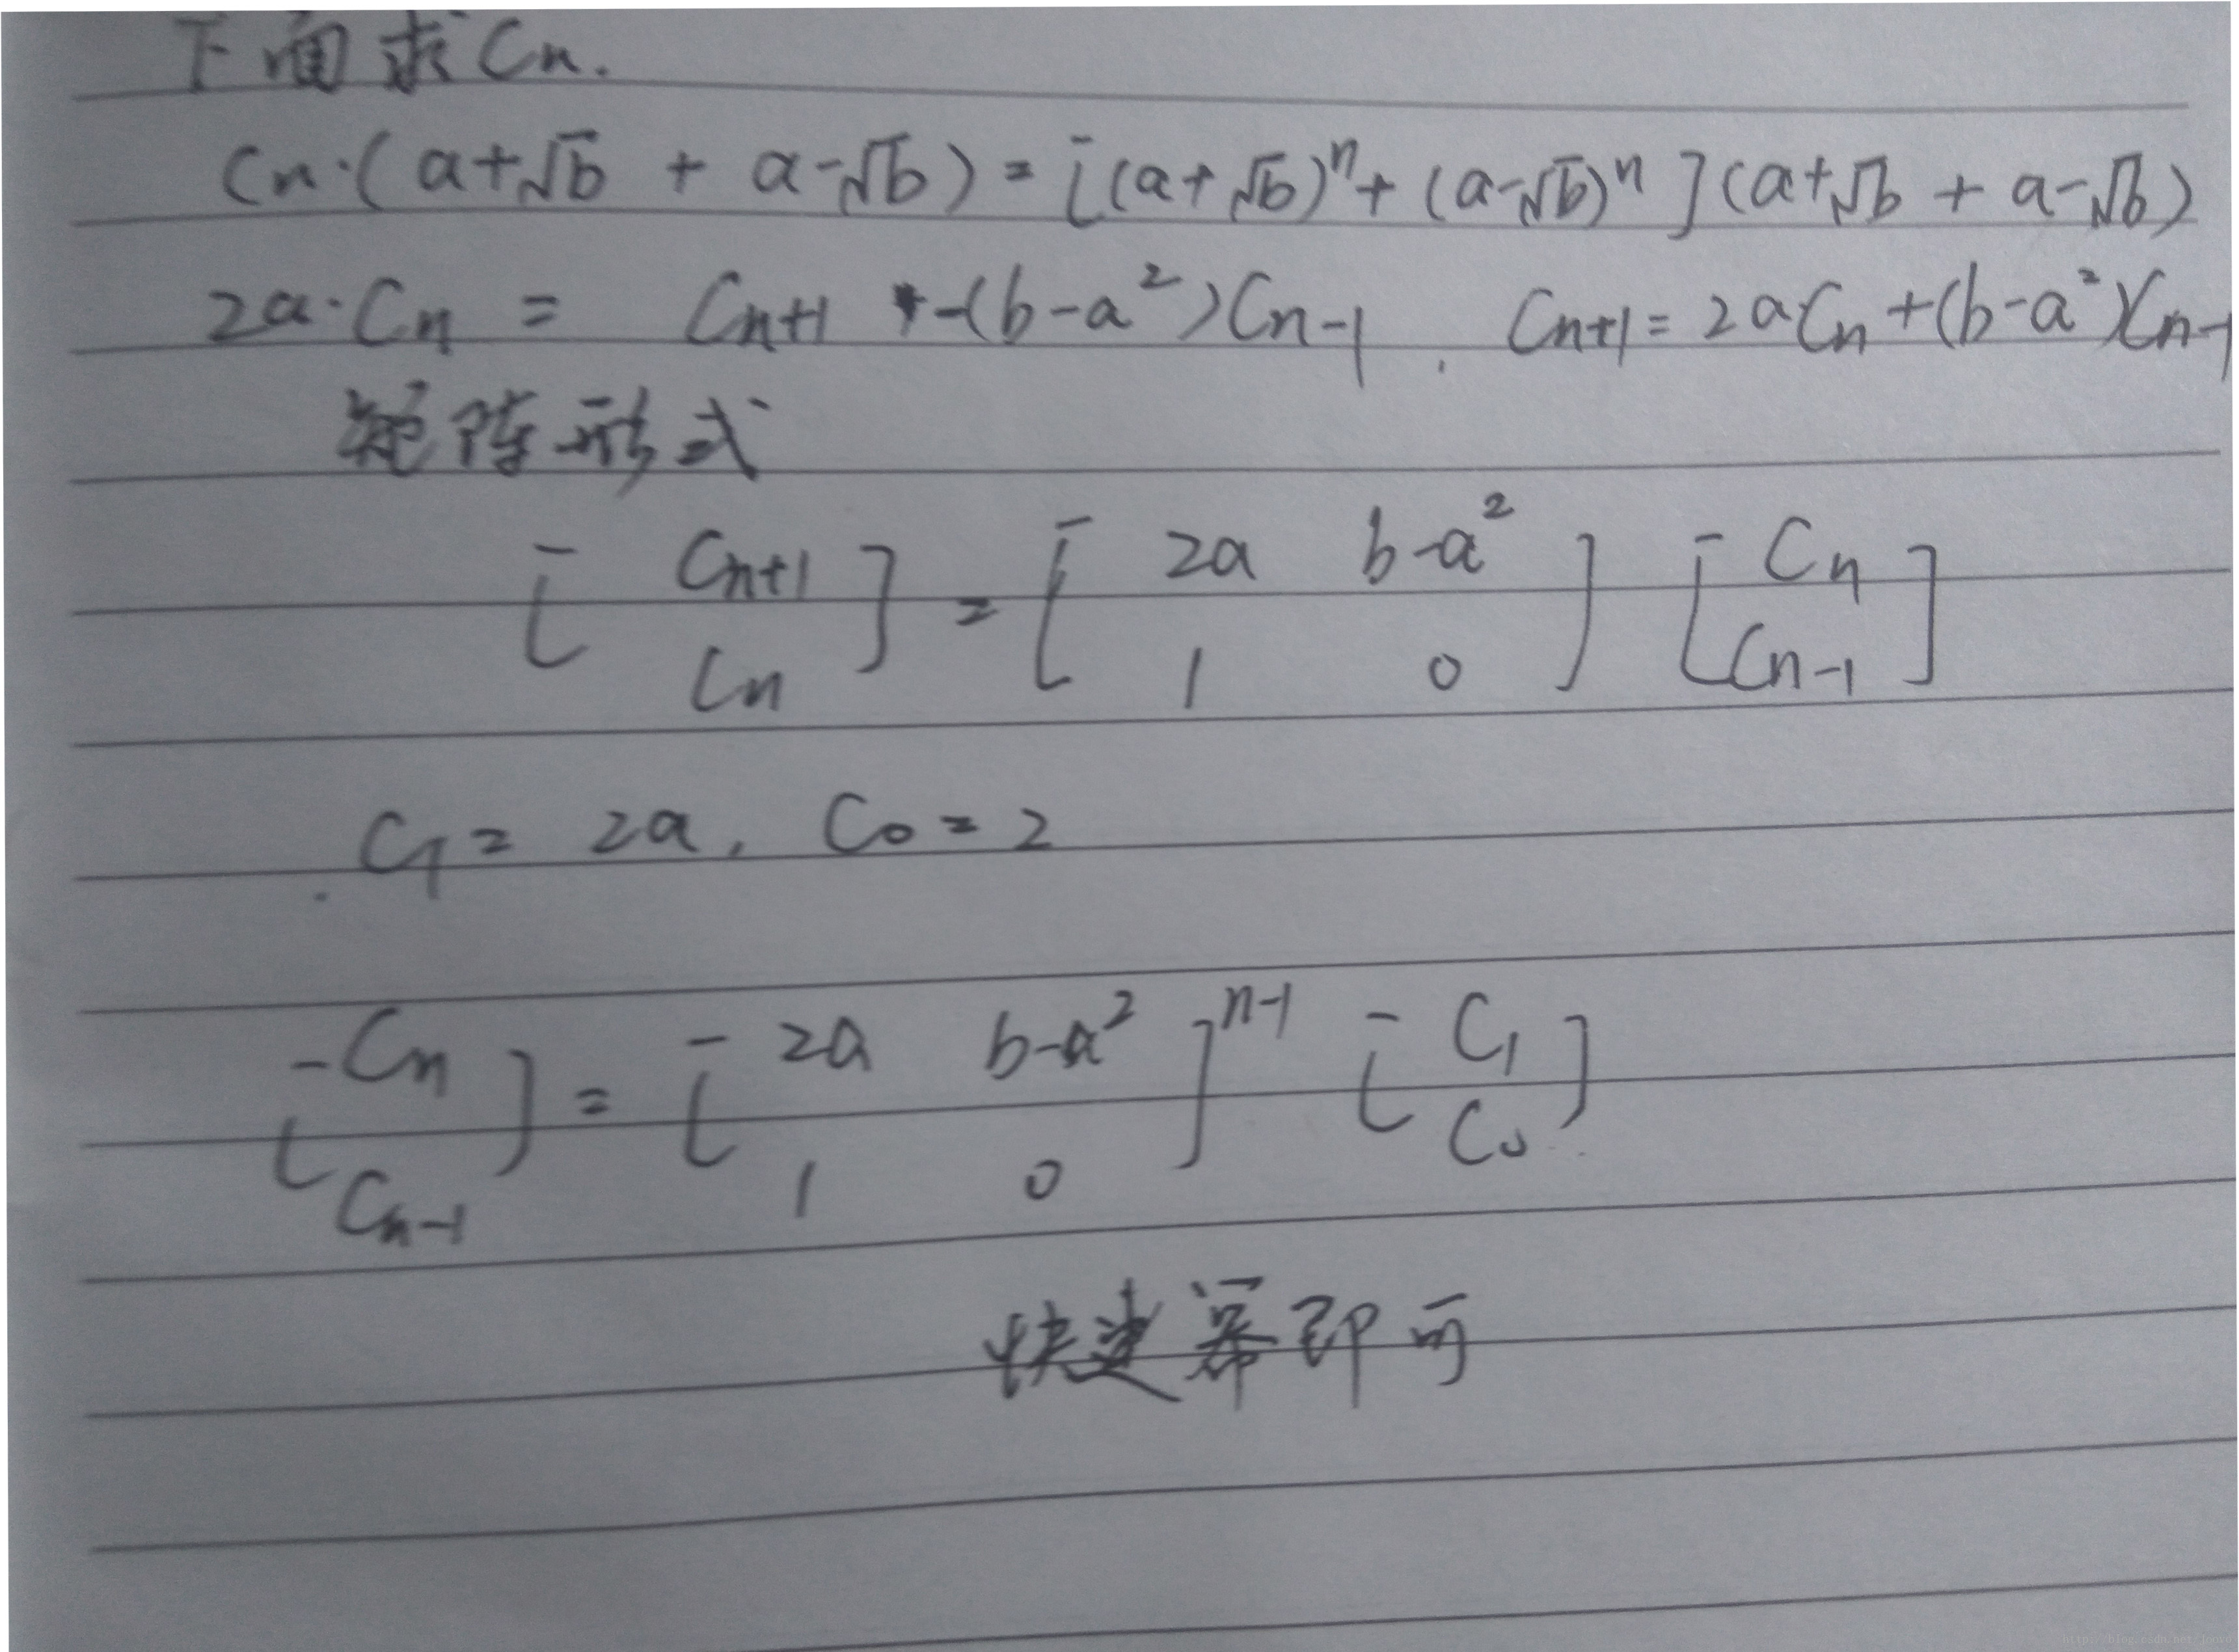 下面求Cn.
Cn·(a+√b + a-√b) = [(a+√b)^n + (a-√b)^n](a+√b + a-√b)
2a·Cn = Cn+1 -(b-a²)Cn-1 . Cn+1 = 2aCn+(b-a²)Cn-1
矩阵形式
[Cn+1] = [2a b-a²] [Cn]
[Cn] [1 0] [Cn-1]
C1 = 2a, C0 = 2
[Cn] = [2a b-a²]^n-1 [C1]
[Cn-1] [1 0] [C0]
快速幂即可